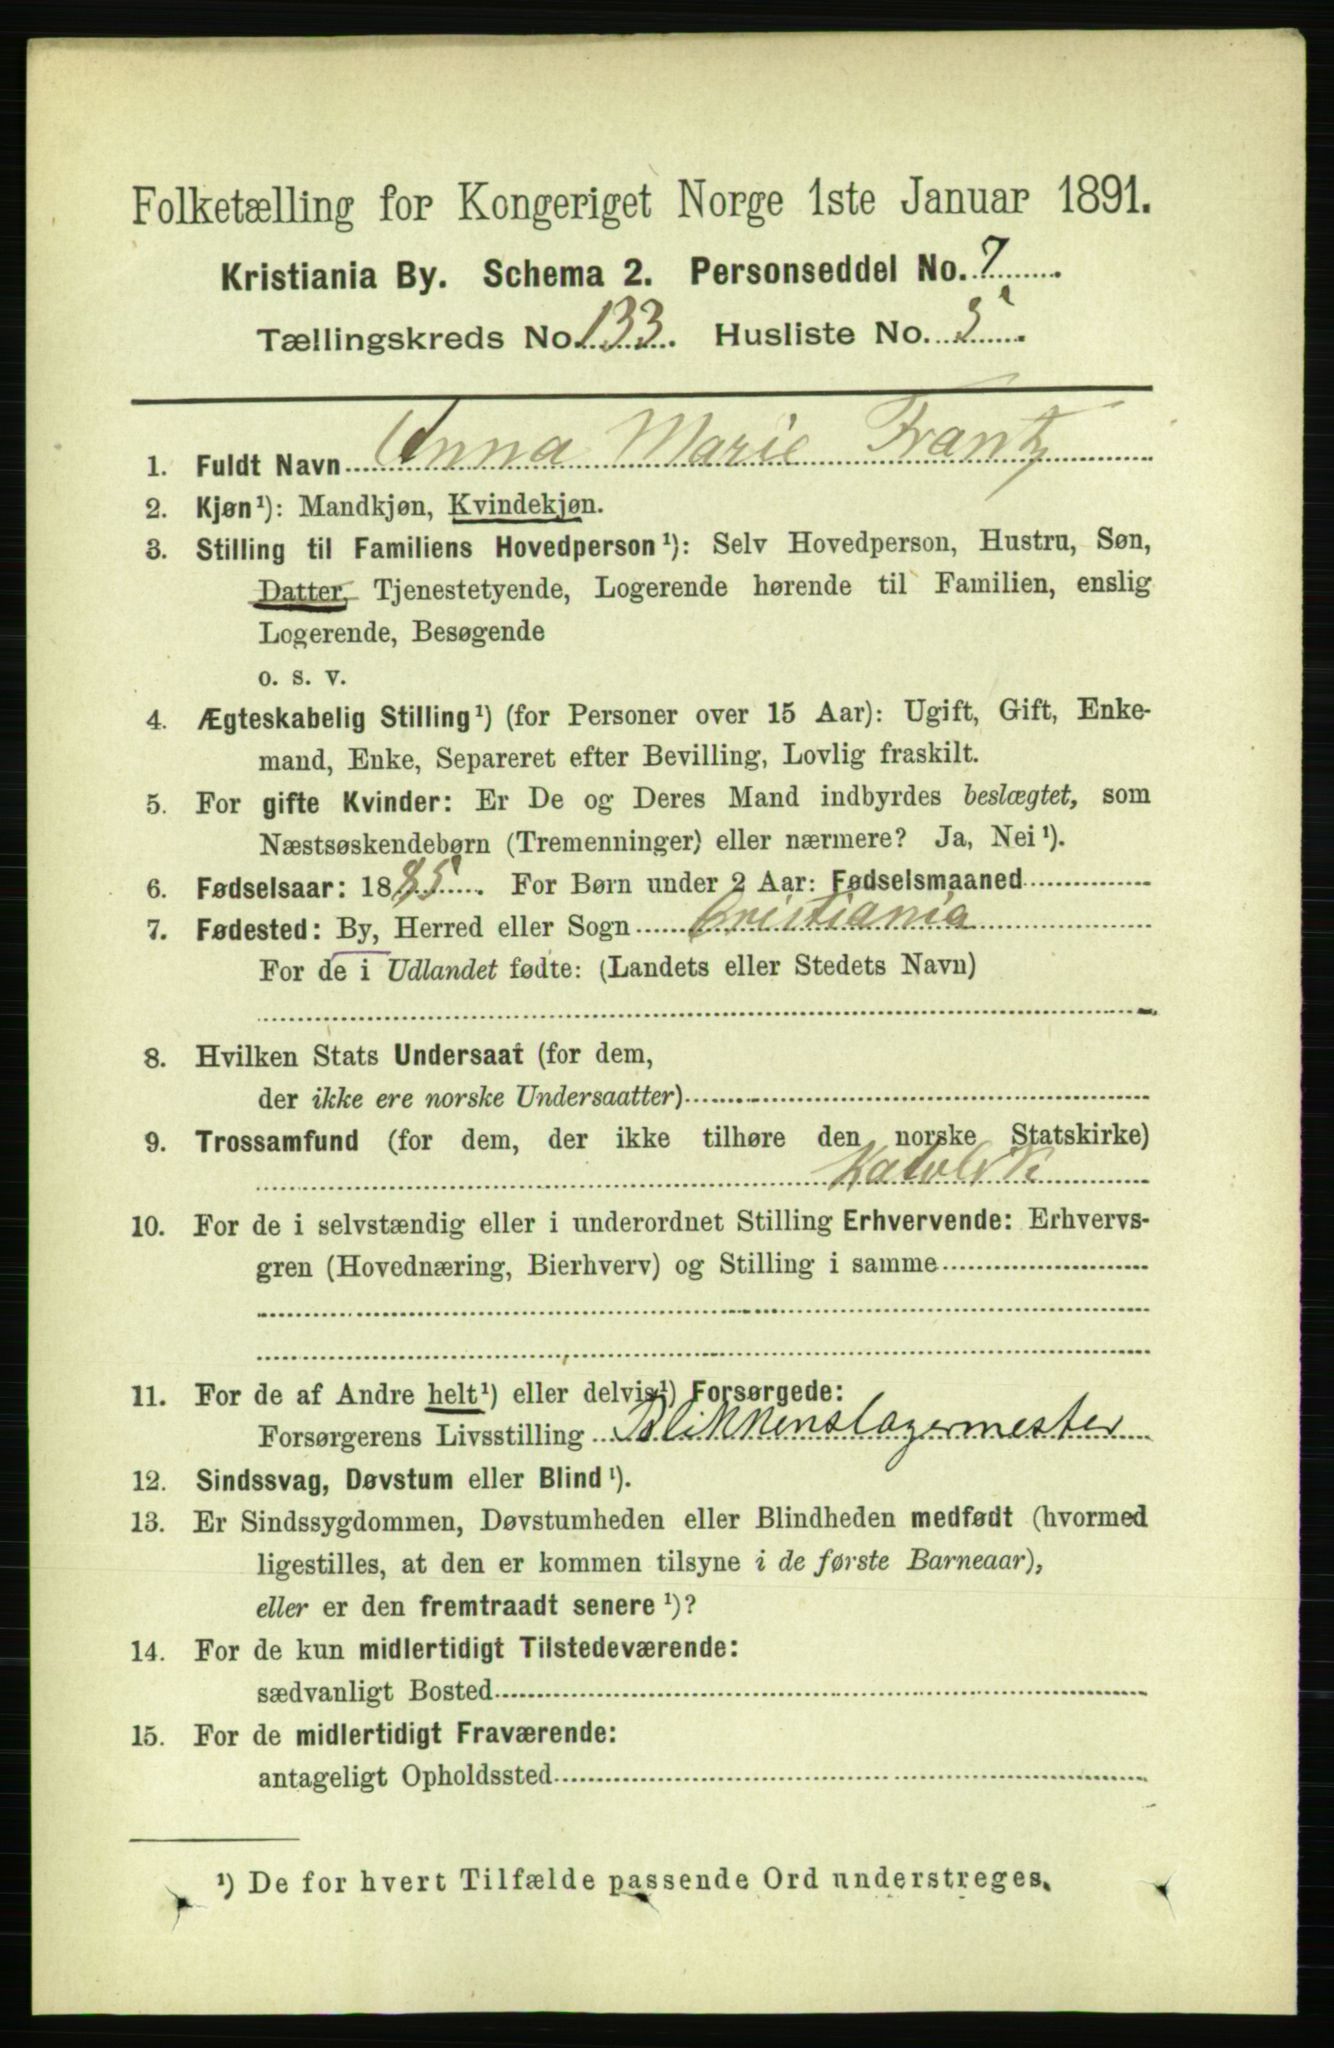 Folketælling for Kongeriget Norge 1ste Januar 1891.
Kristiania By. Schema 2. Personseddel No. 7
Tællingskreds No. 133. Husliste No. 5.
1. Fuldt Navn Anna Marie Frantz
2. Kjøn¹): Mandkjøn, Kvindekjøn.
3. Stilling til Familiens Hovedperson¹): Selv Hovedperson, Hustru, Søn,
Datter, Tjenestetyende, Logerende hørende til Familien, enslig
Logerende, Besøgende
o. s. v.
4. Ægteskabelig Stilling¹) (for Personer over 15 Aar): Ugift, Gift, Enke-
mand, Enke, Separeret efter Bevilling, Lovlig fraskilt.
5. For gifte Kvinder: Er De og Deres Mand indbyrdes beslægtet, som
Næstsøskendebørn (Tremenninger) eller nærmere? Ja, Nei¹).
6. Fødselsaar: 1885. For Børn under 2 Aar: Fødselsmaaned
7. Fødested: By, Herred eller Sogn Cristiania
For de i Udlandet fødte: (Landets eller Stedets Navn)
8. Hvilken Stats Undersaat (for dem,
der ikke ere norske Undersaatter)
9. Trossamfund (for dem, der ikke tilhøre den norske Statskirke)
Katolsk
10. For de i selvstændig eller i underordnet Stilling Erhvervende: Erhvervs-
gren (Hovednæring, Bierhverv) og Stilling i samme
11. For de af Andre helt¹) eller delvis¹) Forsørgede:
Forsørgerens Livsstilling Blikkenslagermester
12. Sindssvag, Døvstum eller Blind¹).
13. Er Sindssygdommen, Døvstumheden eller Blindheden medfødt (hvormed
ligestilles, at den er kommen tilsyne i de første Barneaar),
eller er den fremtraadt senere¹)?
14. For de kun midlertidigt Tilstedeværende:
sædvanligt Bosted
15. For de midlertidigt Fraværende:
antageligt Opholdssted
¹) De for hvert Tilfælde passende Ord understreges.